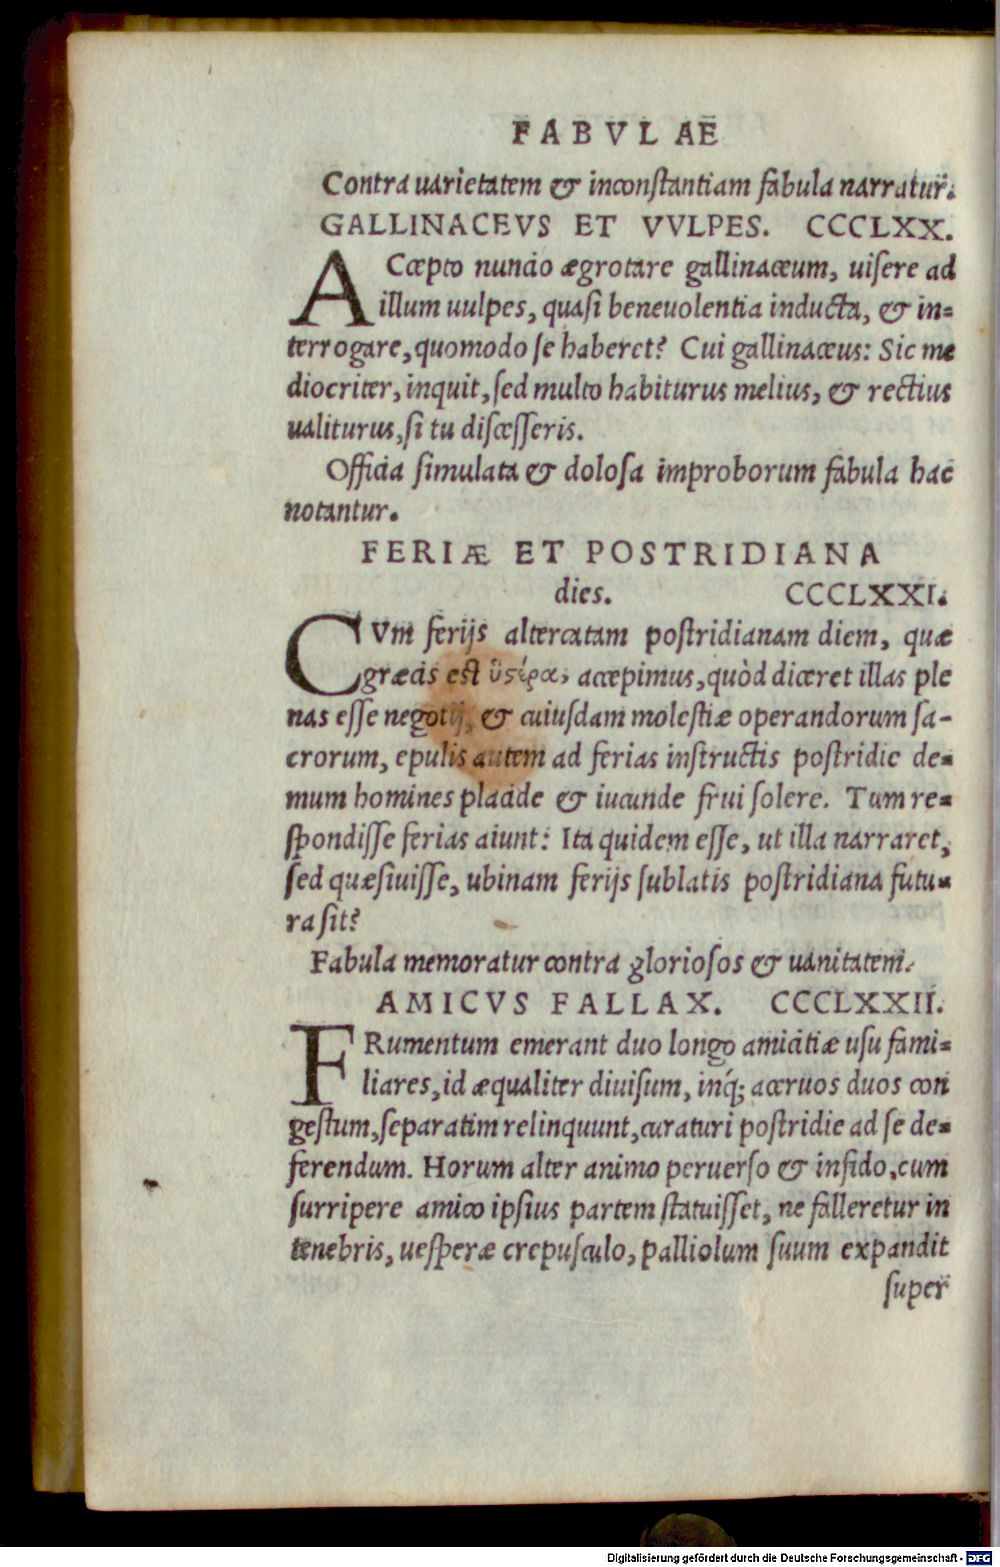 FABVLAE
Contra uarietatem & inconstantiam fabula narratur.
GALLINACEVS ET VVLPES. CCCCLXX.
ACcepto nuncio ægrotare gallinaceum, uisere ad
illum uulpes, quasi beneuolentia inducta, & in-
terrogare, quomodo se haberet? Cui gallinaceus: Sic me
diocriter, inquit, sed multo habiturus melius, & rectius
ualiturus, si tu discesseris.
Officia simulata & dolosa improborum fabula hac
notantur.
FERIÆ ET POSTRIDIANA
dies. CCCCLXXI.
CVm ferijs altercatam postridianam diem, quæ
græcis est ὑστέρα, accepimus, quòd diceret illas ple
nas esse negotij, & cuiusdam molestiæ operandorum sa-
crorum, epulis autem ad ferias instructis postridie de-
mum homines placide & iucunde frui solere. Tum re-
spondisse ferias aiunt: Ita quidem esse, ut illa narraret,
sed quæsiuisse, ubinam ferijs sublatis postridiana futu-
ra sit?
Fabula memoratur contra gloriosos & uanitatem.
AMICVS FALLAX. CCCCLXXII.
FRumentum emerant duo longo amicitiæ usu fami-
liares, id æqualiter diuisum, inq́; aceruos duos con
gestum, separatim relinquunt, curaturi postridie ad se de-
ferendum. Horum alter animo peruerso & infido, cum
surripere amico ipsius partem statuisset, ne falleretur in
tenebris, uesperæ crepusculo, palliolum suum expandit
super
Digitalisierung gefördert durch die Deutsche Forschungsgemeinschaft - DFG